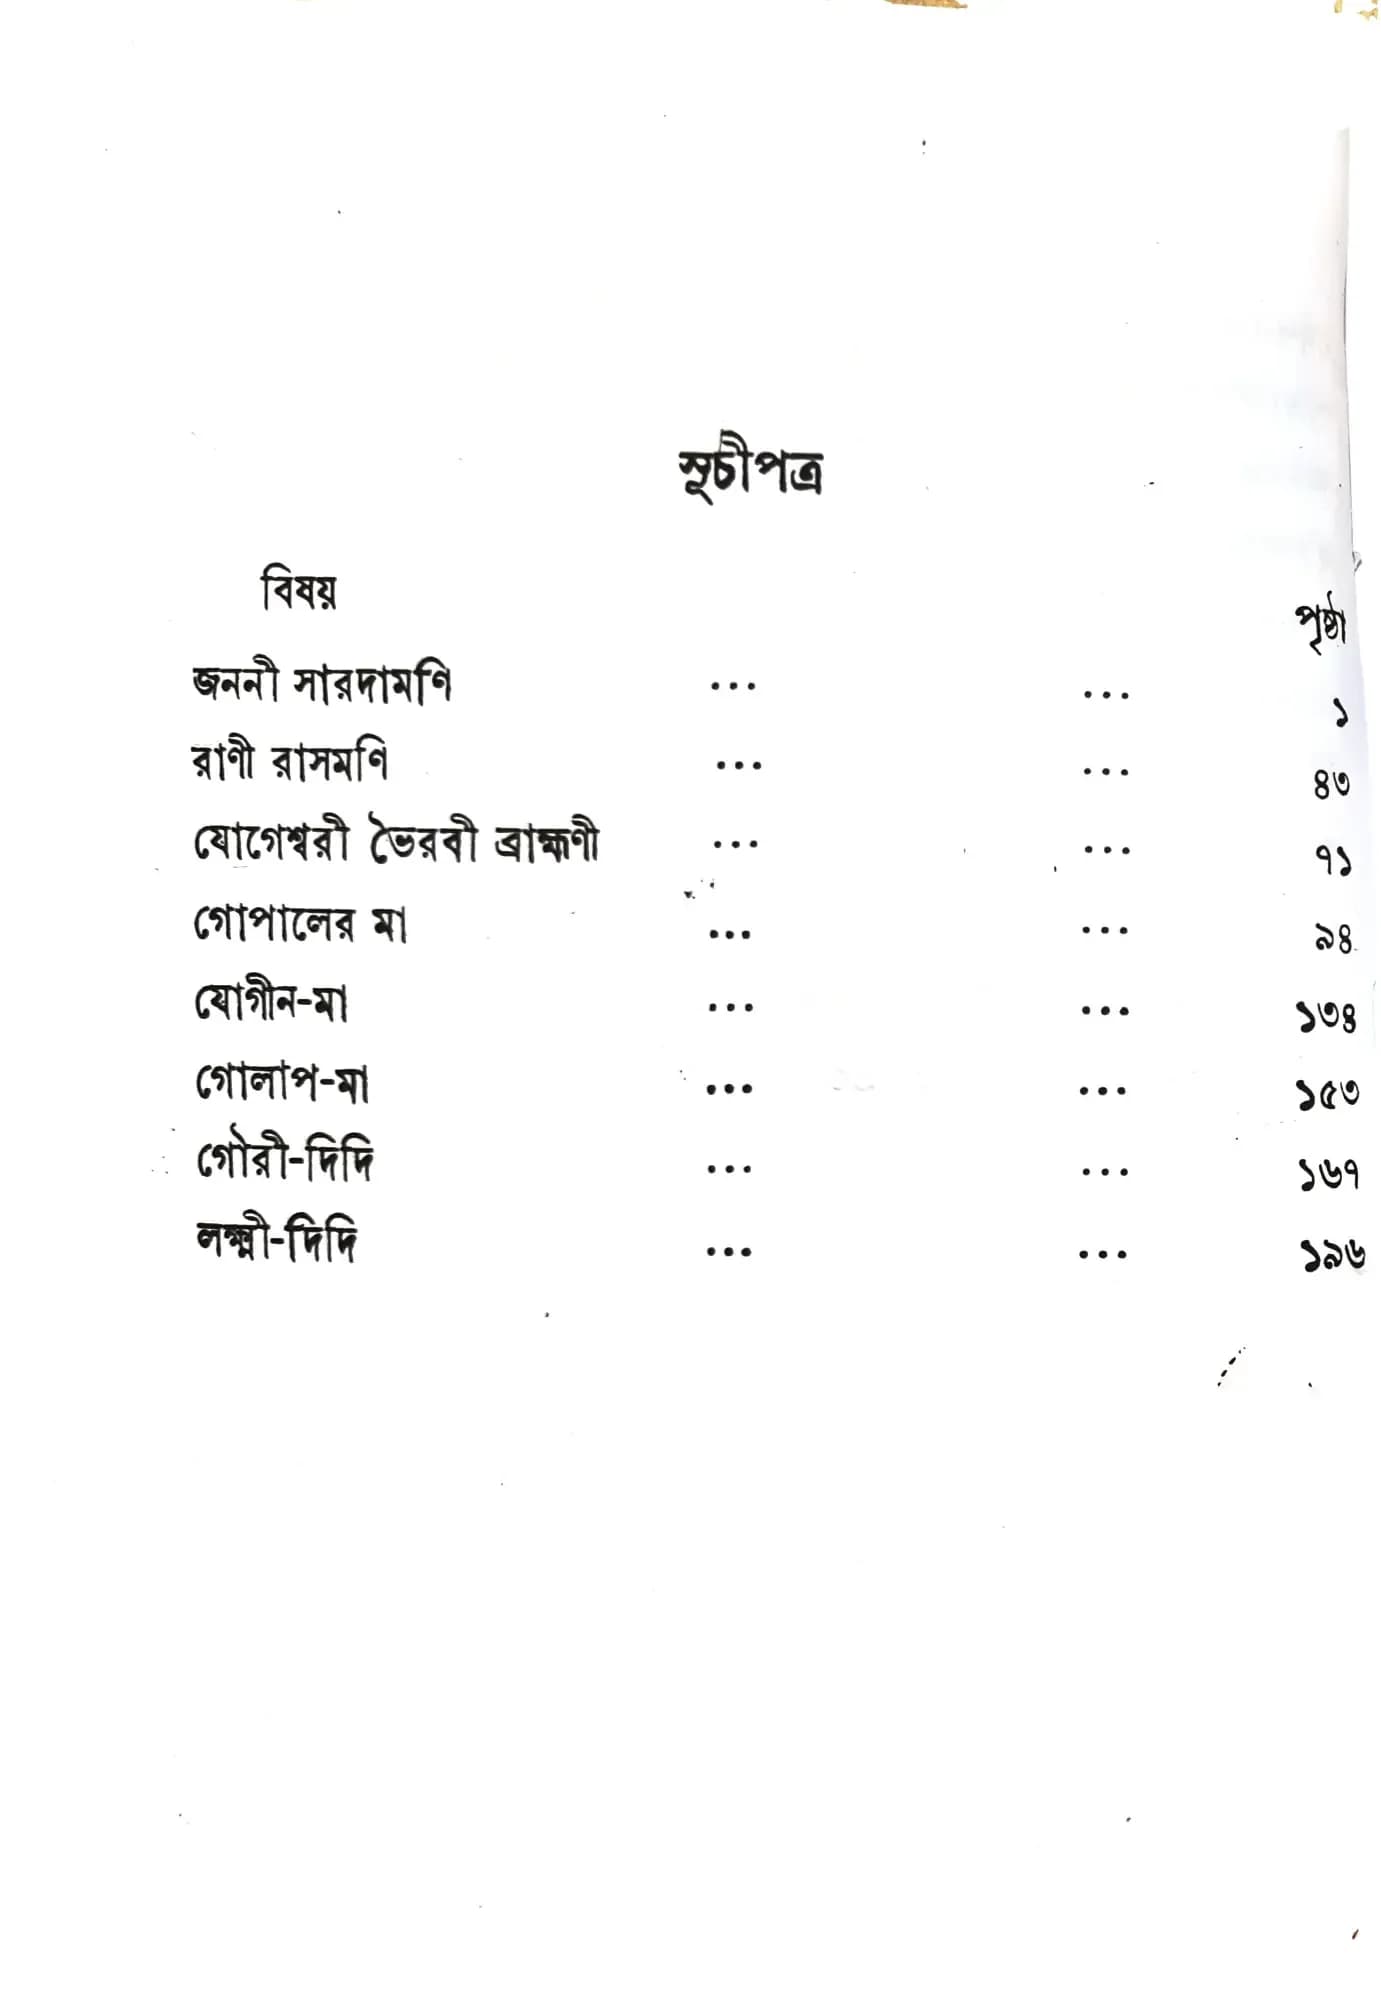 সূচীপত্র
বিষয় পৃষ্ঠা
জননী সারদামণি ... ... ১
রাণী রাসমণি ... ... ৪৩
যোগেশ্বরী ভৈরবী ব্রাহ্মণী ... ... ৭১
গোপালের মা ... ... ৯৪
যোগীন-মা ... ... ১৩৪
গোলাপ-মা ... ... ১৫৩
গৌরী-দিদি ... ... ১৬৭
লক্ষ্মী-দিদি ... ... ১৯৬